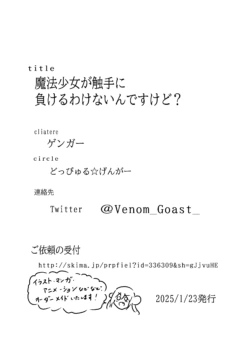 title
魔法少女が触手に
負けるわけないんですけど?
cliatere
ゲンガー
circle
どっぴゅる☆げんがー
連絡先
Twitter @Venom_Goast_
ご依頼の受付
http://skima.jp/prpfiel?id=336309&sh=gJjvuHE
イラスト・マンガ・
アニメーションなどなど!
オーダーメイドいたします!
2025/1/23発行